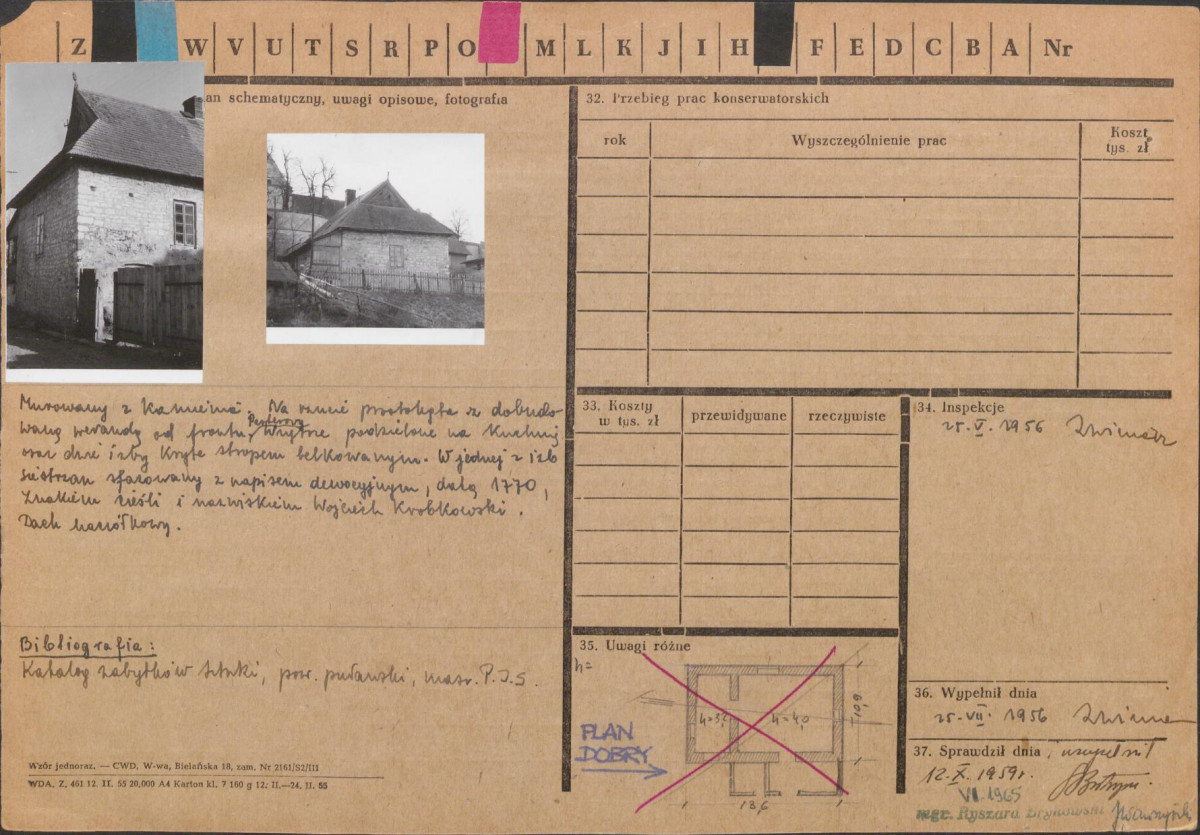 Z W V U T S R P O M L K J I H F E D C B A Nr
an schematyczny, uwagi opisowe, fotografia
Murowany z kamienia. Na rzucie prostokąta z dobudo-
waną werandą od frontu. Wnętrze podzielone na kuchnię
oraz dwie izby kryte stropem belkowanym. W jednej z izb
siestrzan sfazowany z napisem dewocyjnym, datą 1770,
znakiem cieśli i nazwiskiem Wojciech Krobkowski.
Dach naczółkowy.
Bibliografia:
Katalog zabytków sztuki, pow. puławski, masz. P.I.S.
Wzór jednoraz. — CWD, W-wa, Bielańska 18, zam. Nr 2161/S2/III
WDA. Z. 461 12. II. 55 20,000 A4 Karton kl. 7 160 g 12. II.—24. II. 55
32. Przebieg prac konserwatorskich
rok Wyszczególnienie prac Koszt tys. zł
33. Koszty w tys. zł przewidywane rzeczywiste
34. Inspekcje
25. V. 1956
35. Uwagi różne
h=
h=3,2 h=4,0
10,9
PLAN
DOBRY
13,6
36. Wypełnił dnia
25. VII. 1956
37. Sprawdził dnia, uzupełnił
12. X. 1959r.
VI. 1965
mgr. Ryszard Brykowski